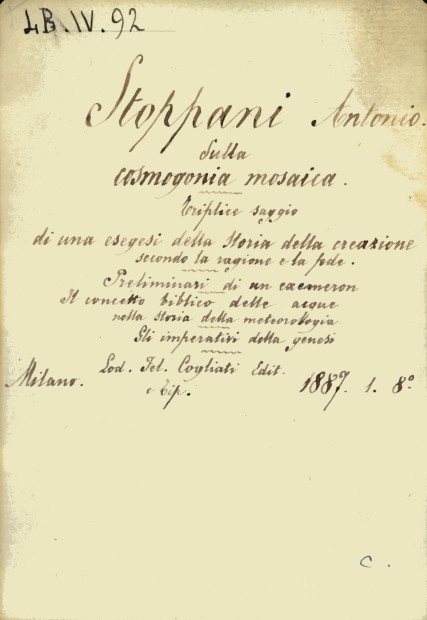 LB.IV.92
Stoppani Antonio.
Sulla
cosmogonia mosaica.
Triplice saggio
di una esegesi della storia della creazione
secondo la ragione e la fede.
Preliminari di un exemeron
Il concetto biblico delle acque
nella storia della meteorologia
Gli imperativi della genesi
Milano. Lod. Fel. Cogliati Edit. 1887. 1. 8º
e Tip.
C.